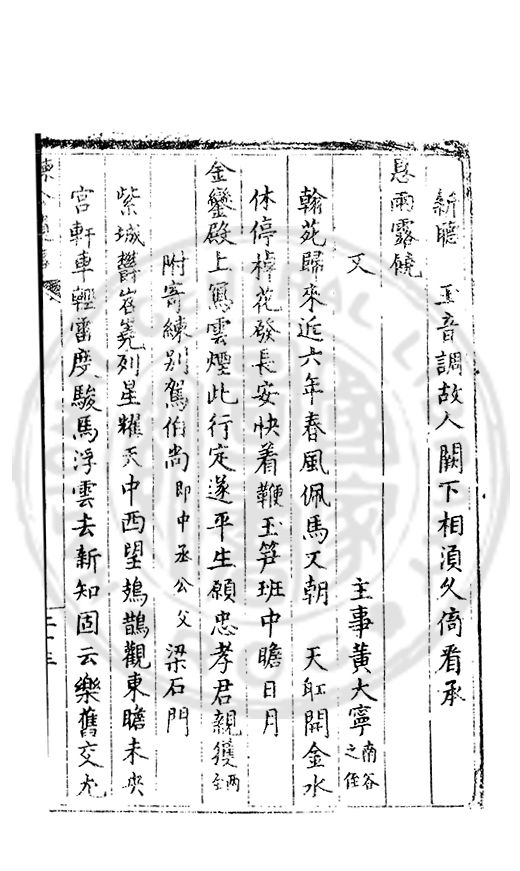 新聽　玉音調故人闕下相湏久倚看承
恩雨露饒
又　　　主事黃大寧南谷之侄
翰苑歸來近六年春風佩馬又朝　天舡開金水
休停棹花發長安快着鞭玉笋班中瞻日月
金鑾殿上寫雲煙此行定遂平生願忠孝君親獲兩全
附寄練別駕伯尚即中丞公父　梁石門
紫城欝岧嶤列星耀天中西望鳷鵲觀東瞻未央
宮軒車輕雷度駿馬浮雲去新知固云樂舊交尤
二十三